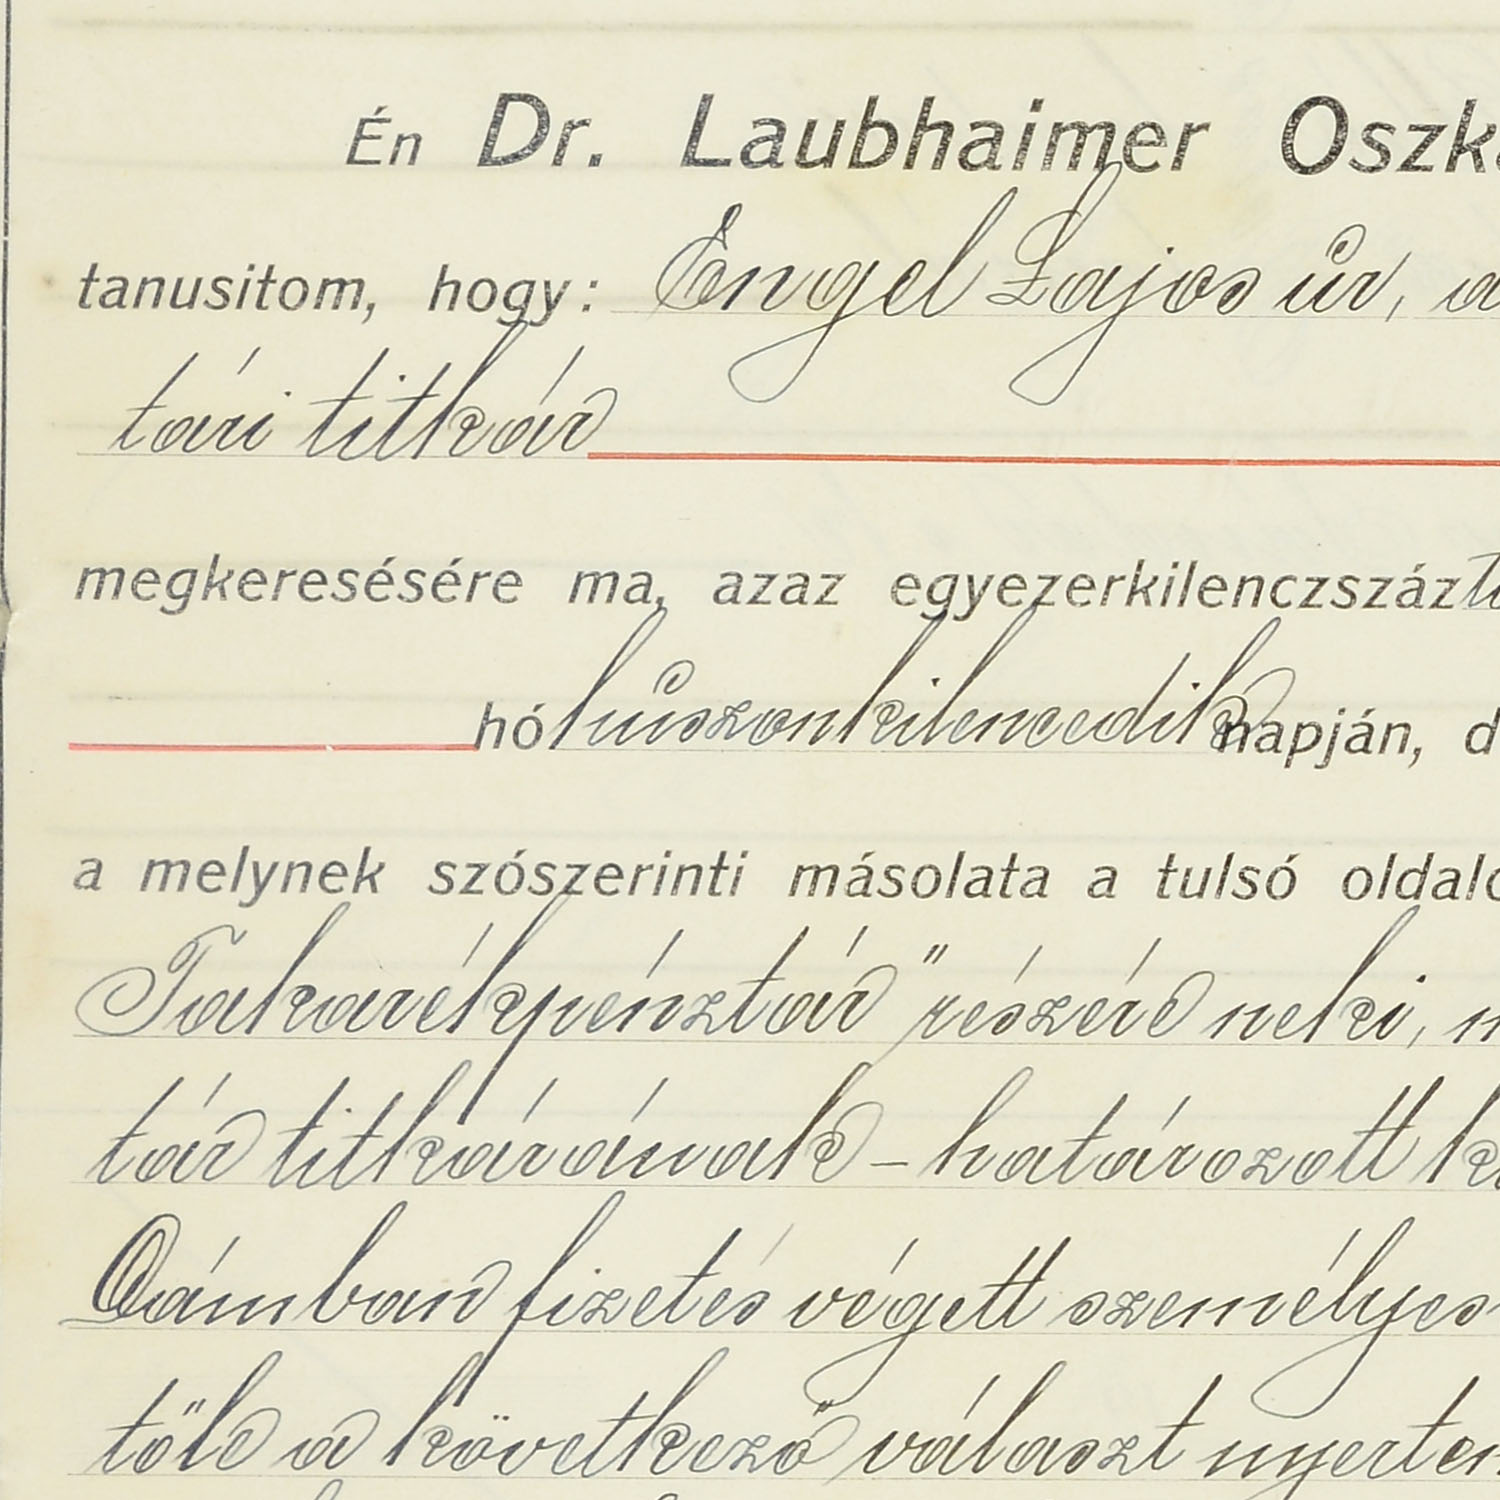 Én Dr. Laubhaimer Oszká
tanusitom, hogy: Engel Lajos úr, a
tári titkár
megkeresésére ma, azaz egyezerkilenczszázti
hó huszonkilencedik napján, d
a melynek szószerinti másolata a tulsó oldalo
Takarékpénztár" részére neki, n
tár titkárának – határozott k
fizetés végett személyes
tőle a következő választ nyertem